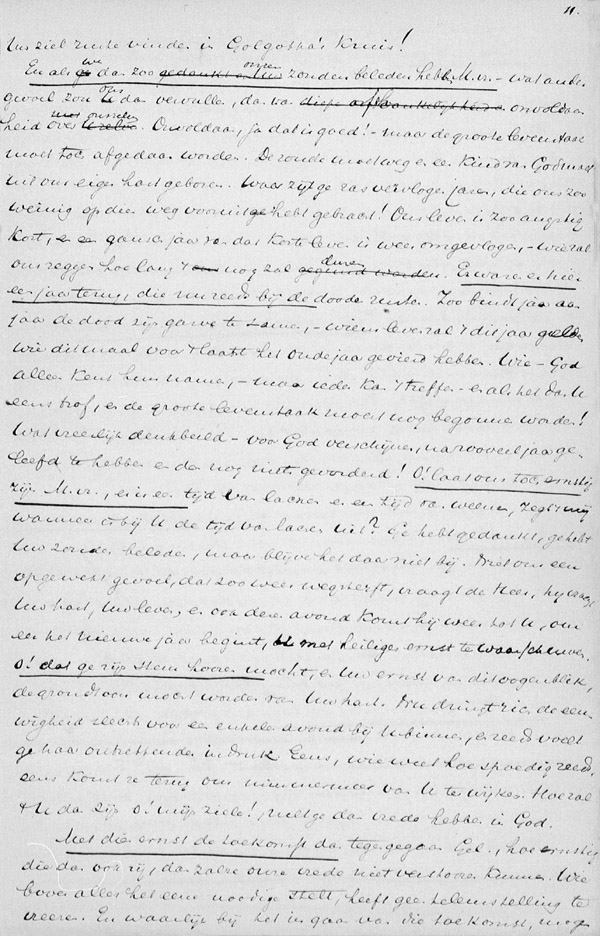 11.
Uw ziel ruste vinde in Golgotha's Kruis!
En als we dan zoo onze zonden beleden hebben, M.vr. - wat ander
gevoel zou ons dan vervullen, dan van onvoldaan
heid over onszelven. Onvoldaan, ja dat is goed! - maar de groote levenstaak
moet toch afgedaan worden. De zonde moet weg en een Kind van God moet
uit ons eigen hart geboren. Waar zijt ge ras vervlogen jaren, die ons zoo
weinig op dien weg vooruit hebt gebracht! Ons leven is zoo angstig
kort, en een gansch jaar van dat korte leven is weer omgevlogen, - wie zal
ons zeggen hoe lang 't nog zal duren. Er waren er hier
een jaar terug, die nu reeds bij de dooden rusten. Zoo bindt jaar aan
jaar de dood zijn garve te samen, - wiens leven zal 't dit jaar gelden
wie dit maal voor 't laatst het oude jaar gevierd hebben. Wie - God
alleen kent hun namen, - maar ieder kan 't treffen - en als het dan U
eens trof, en de groote levenstaak moest nog begonnen worden!
Wat vreeslijk denkbeeld - voor God verschijnen, na zooveel jaar ge-
leefd te hebben en dan nog niets gevorderd! O! laat ons toch ernstig
zijn M.vr., er is een tijd van lachen en een tijd van weenen, zegt mij
wanneer is bij U de tijd van lachen uit? Ge hebt gedankt, ge hebt
Uw zonden beleden, maar blijve het daar niet bij. Niet om een
opgewekt gevoel, dat zoo weer wegsterft, vraagt de Heer, hij vraagt
Uw hart, Uw leven, en ook dezen avond komt hij weer tot U, om
eer het nieuwe jaar begint, U met heiligen ernst te waarschuwen.
O! dat ge zijn stem hooren mocht, en Uw ernst van dit oogenblik,
de grondtoon mocht worden van Uw hart. Nu dringt zich de eeu-
wigheid slechts voor een enkelen avond bij U binnen, en reeds voelt
ge haar ontzettenden indruk. Eens, wie weet hoe spoedig reeds,
eens komt ze terug om nimmermeer van U te wijken. Hoe zal
't U dan zijn o! mijn ziele! zult ge dan vrede hebben in God.
Met die ernst de toekomst dan tegegegaan Gel., hoe ernstig
die dan ook zij, dan zal ze onze vrede niet verstoren kunnen. Wie
boven alles het een noodige stelt, heeft geen teleurstelling te
vreezen. En waarlijk bij het ingaan van die toekomst, mog